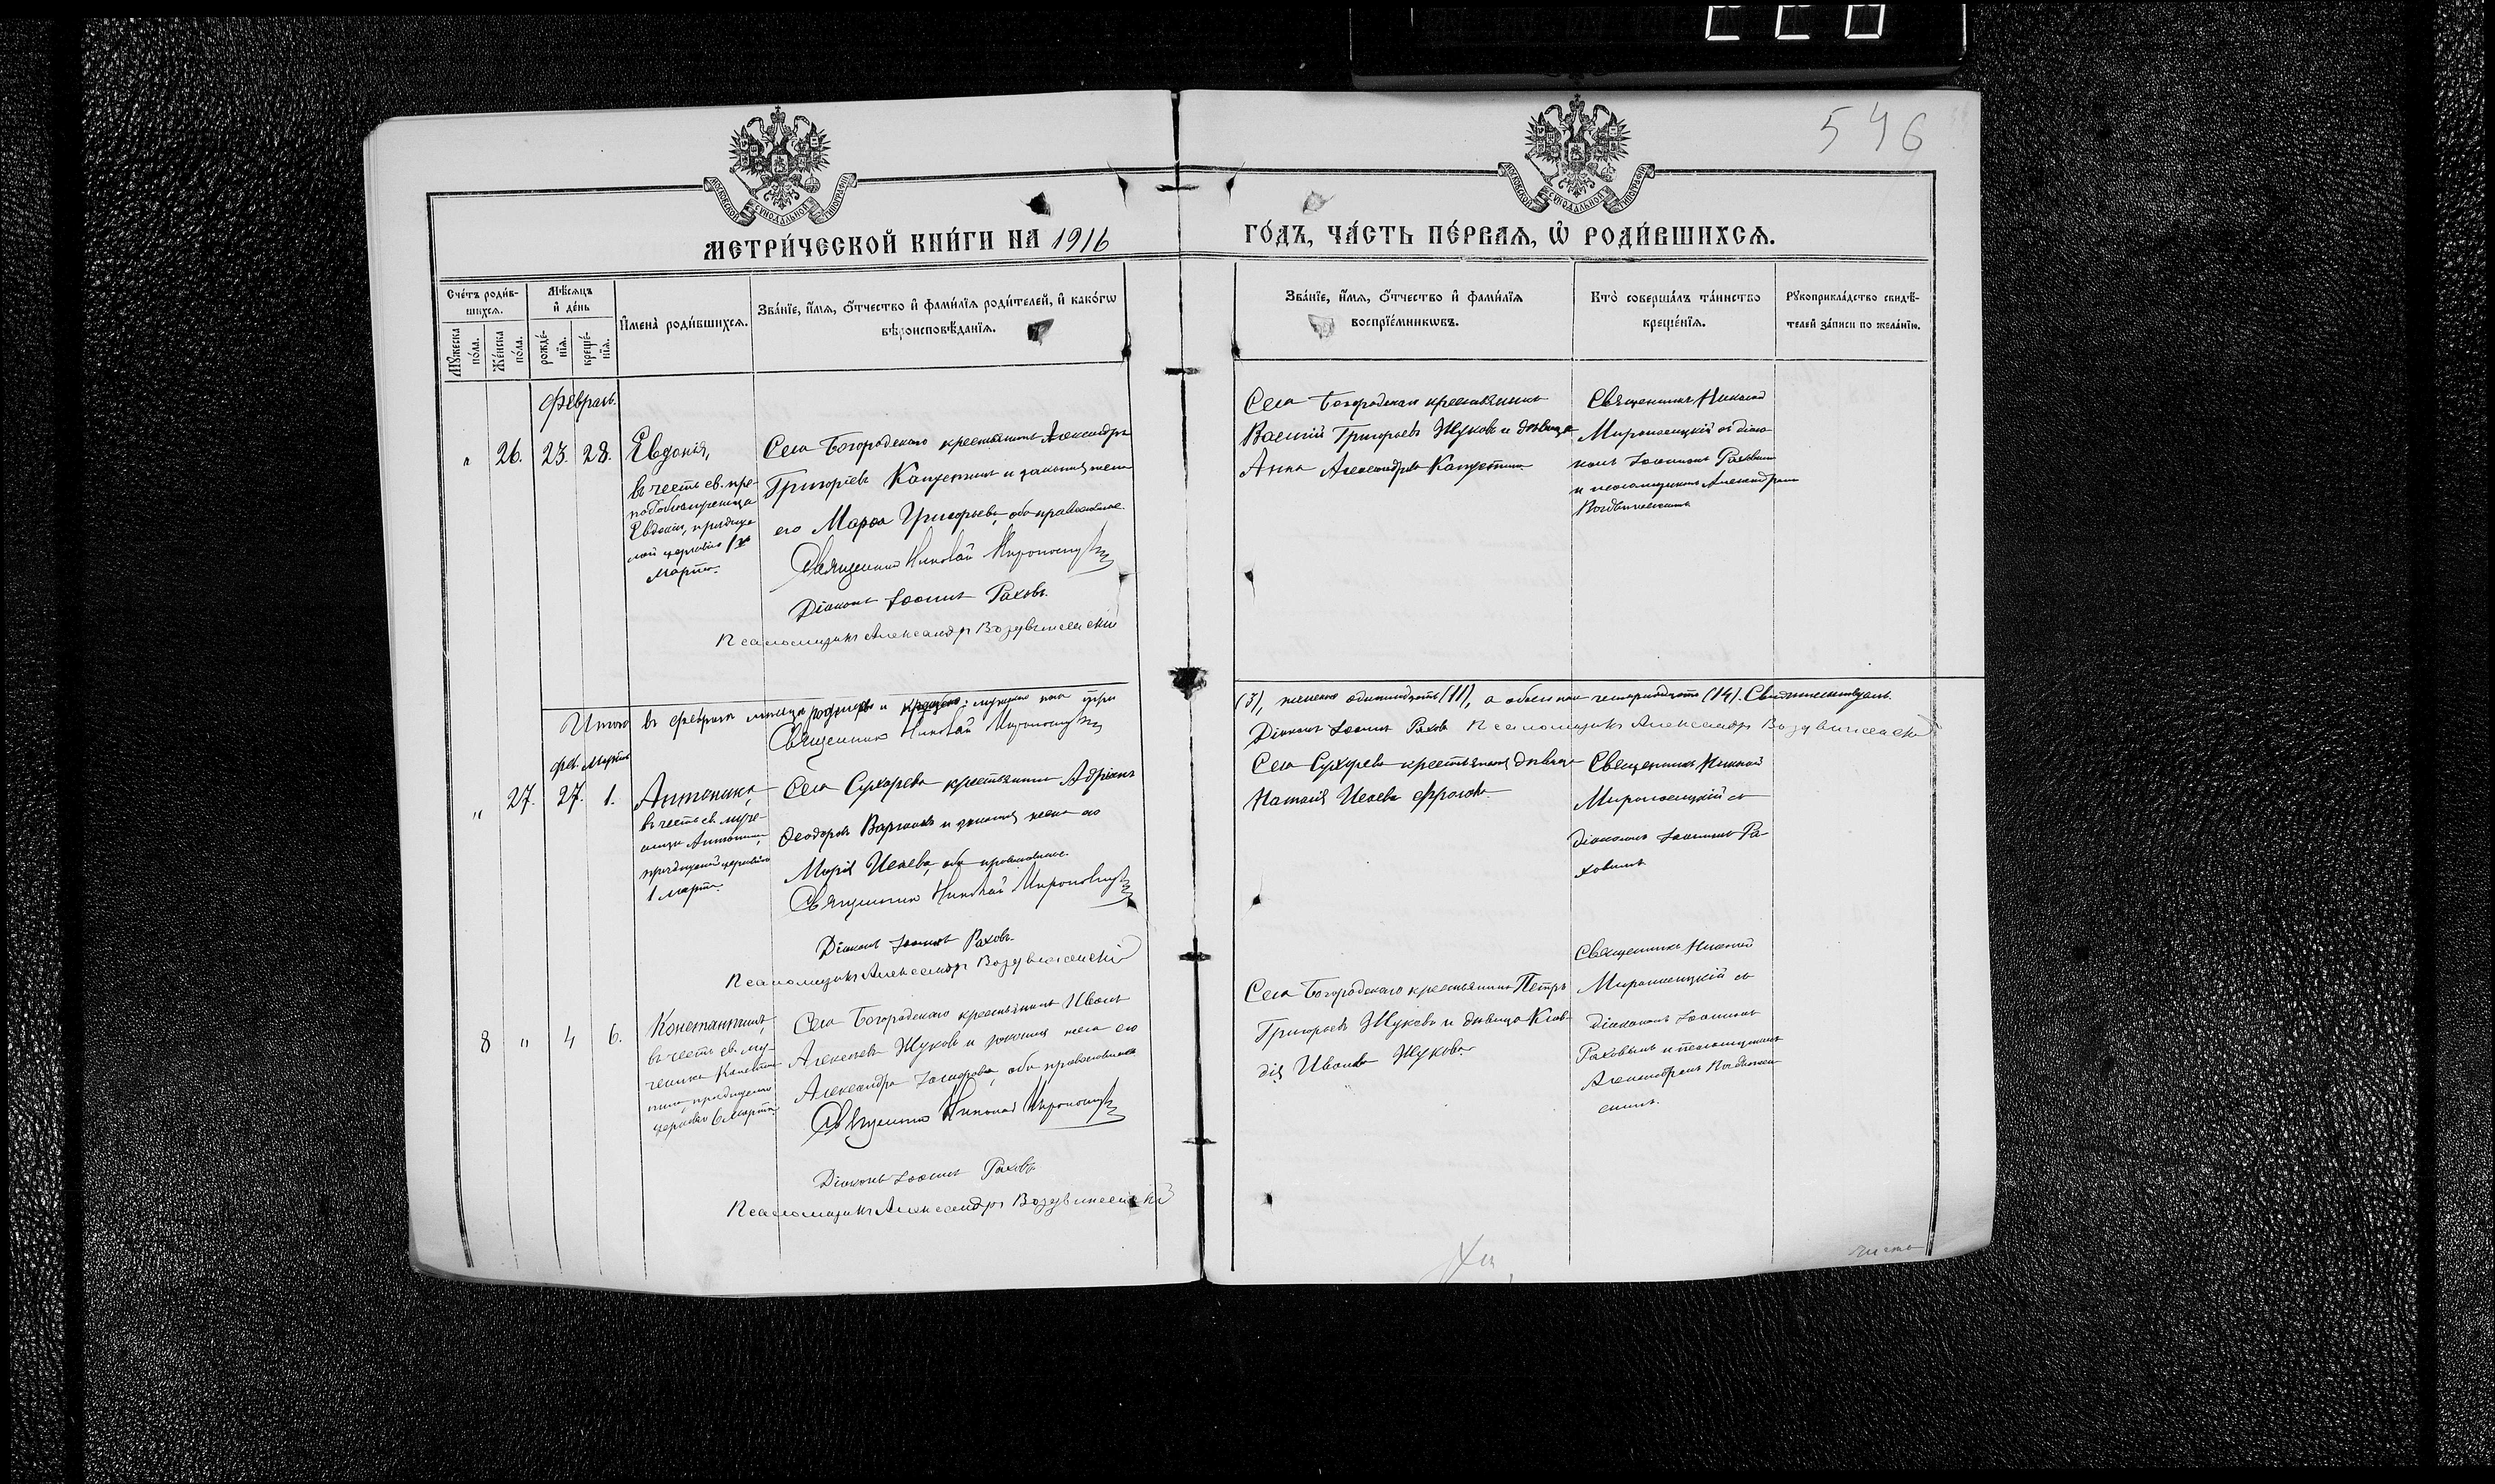 546
МОСКОВСКОЙ СѴНОДАЛЬНОЙ ТИПОГРАФІИ
МОСКОВСКОЙ СѴНОДАЛЬНОЙ ТИПОГРАФІИ
МЕТРИ́ЧЕСКОЙ КНИ́ГИ НА 1916
ГО́ДЪ, ЧА́СТЬ ПЕ́РВАѦ, Ѡ҆ РОДИ́ВШИХСѦ.
Сче́тъ роди́в-
шихсѧ.
Мꙋ́жеска
по́ла.
Же́нска
по́ла.
Мѣ́сѧцъ
и҆ де́нь
рожде́-
нїѧ.
креще́-
нїѧ.
И҆мена̀ роди́вшихсѧ.
Зва́нїе, и҆́мѧ, ѻ҆́тчество и҆ фамѝлїѧ роди́телей, и҆ како́гѡ
вѣроисповѣ́данїѧ.
Зва́нїе, и҆́мѧ, ѻ҆́тчество и҆ фамѝлїѧ
воспрїе́мникѡвъ.
Кто̀ соверша́лъ та́инство
креще́нїѧ.
Рꙋкоприкла́дство свидѣ́-
телей за́писи по жела́нїю.
Февраль.
" 26. 23. 28. Евдокія,
въ честь св. пре-
подобномученицы
Евдокіи, празднуе-
мой церковію 1го
Марта.
Села Богородскаго крестьянинъ Александръ
Григорьевъ Капустинъ и законная жена
его Марѳа Григорьева, оба православные.
Священникъ Николай Мироносицкій
Діаконъ Іоаннъ Раховъ.
Псаломщикъ Александръ Воздвиженскій
Села Богородскаго крестьянинъ
Василій Григорьевъ Жуковъ и дѣвица
Анна Александрова Капустина
Священникъ Николай
Мироносицкій съ діако-
номъ Іоанномъ Раховымъ
и псаломщикомъ Александромъ
Воздвиженскимъ
Итого въ февралѣ мѣсяцѣ родилось и крещено: мужеска пола три
(3), женска одиннадцать (11), а обоего пола четырнадцать (14). Свидѣтельствуемъ.
Священникъ Николай Мироносицкій
Діаконъ Іоаннъ Раховъ Псаломщикъ Александръ Воздвиженскій
Фев. Мартъ
" 27. 27. 1. Антонина,
въ честь св. муче-
ницы Антонины,
празднуемой церковію
1 марта.
Села Сухарева крестьянинъ Адріанъ
Ѳеодоровъ и законная жена его
Марія Исаева, оба православные.
Священникъ Николай Мироносицкій
Діаконъ Іоаннъ Раховъ.
Псаломщикъ Александръ Воздвиженскій
Села Сухарева крестьянская дѣвица
Наталія Исаева Фролова.
Священникъ Николай
Мироносицкій съ
діакономъ Іоанномъ Ра-
ховымъ
8 " 4 6. Константинъ,
въ честь св. му-
ченика Констан-
тина, празднуемаго
церковію 6 марта.
Села Богородскаго крестьянинъ Иванъ
Алексѣевъ Жуковъ и законная жена его
Александра, оба православные
Священникъ Николай Мироносицкій
Діаконъ Іоаннъ Раховъ
Псаломщикъ Александръ Воздвиженскій
Села Богородскаго крестьянинъ Петръ
Григорьевъ Жуковъ и дѣвица Клав-
дія Иванова Жукова.
Священникъ Николай
Мироносицкій съ
діакономъ Іоанномъ
Раховымъ и псаломщикомъ
Александромъ Воздвижен-
скимъ.